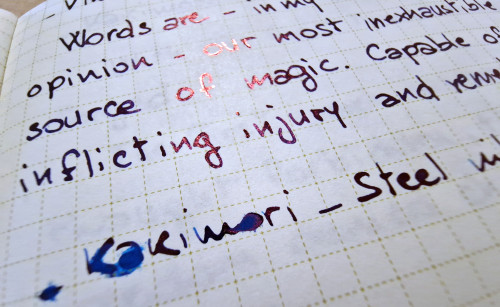 Words are - in my
opinion - our most inexhaustible
source of magic. Capable of
inflicting injury and
• Kakimori - Steel